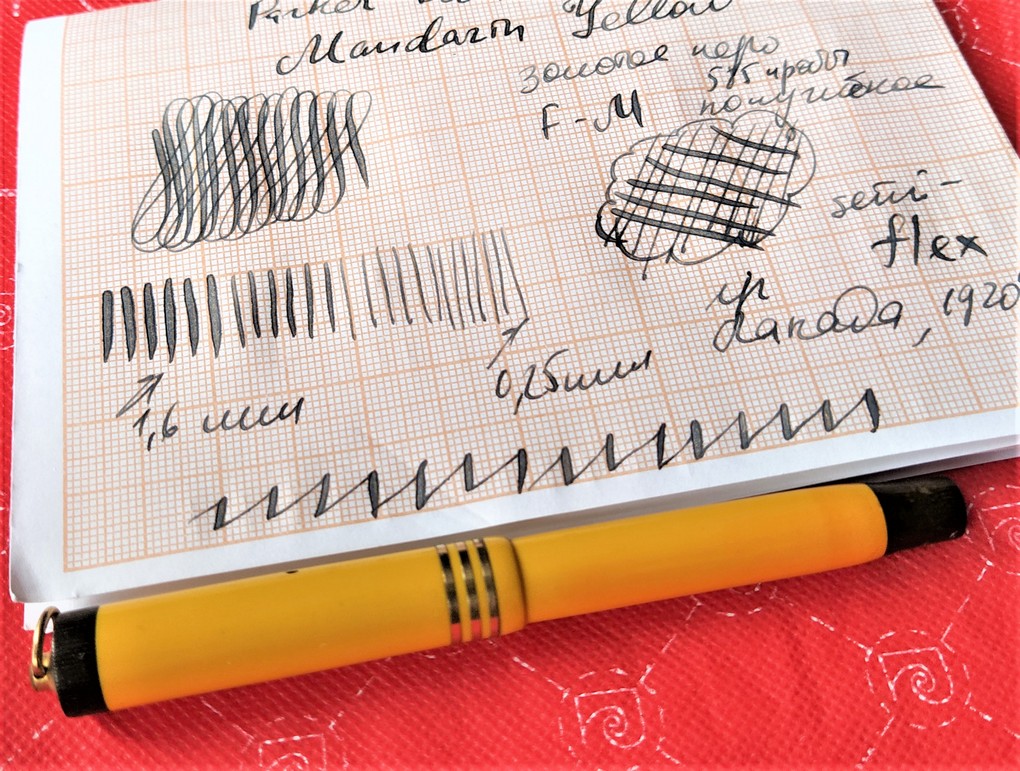 Parker
Mandarin Yellow
золотое перо
585 пробы
F-M полугибкое
semi-
flex
Канада, 1920
1,6 мм
0,25 мм